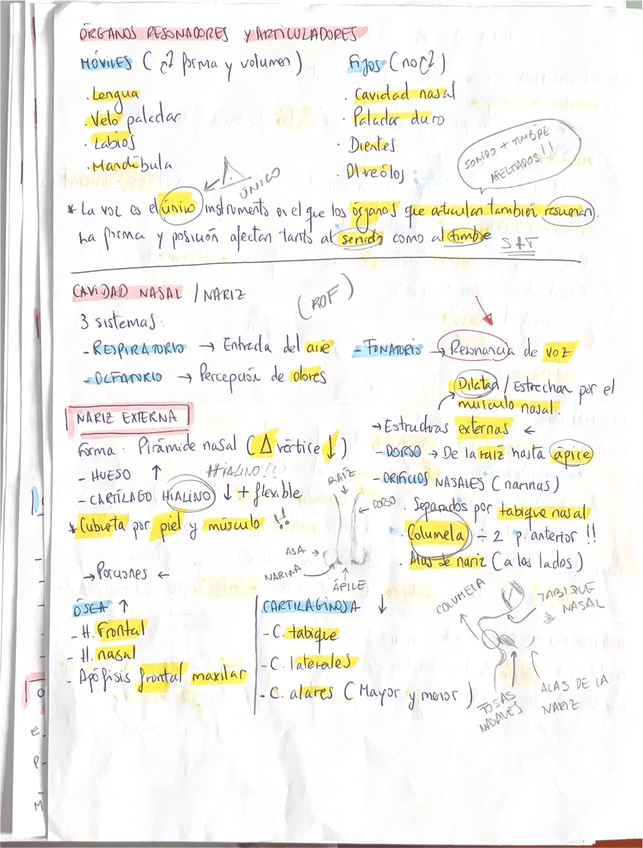 ÓRGANOS RESONADORES Y ARTICULADORES
MÓVILES ( forma y volumen)
. Lengua
. Velo paladar
. Labios
. Mandíbula
FIJOS (no )
. Cavidad nasal
. Paladar duro
. Dientes
. Alveólos
SONIDO + TIMBRE
AFECTADOS!!
ÚNICO
* La voz es el único instrumento en el que los órganos que articulan también resuenan.
La forma y posición afectan tanto al sonido como al timbre S+T
CAVIDAD NASAL / NARIZ
(ROF)
3 sistemas:
- RESPIRATORIO → Entrada del aire
- OLFATORIO → Percepción de olores
- FONATORIO → Resonancia de voz
NARIZ EXTERNA
Forma: Pirámide nasal (Δ vértice ↓)
- HUESO ↑
HIALINO!!
- CARTÍLAGO HIALINO ↓ + flexible
* Cubierta por piel y músculo !!
Dilatan / Estrechan por el
músculo nasal.
→ Estructuras externas ←
- DORSO → De la raíz hasta ápice
- ORIFICIOS NASALES (narinas)
. Separados por tabique nasal
. Columela ÷ 2 p. anterior !!
. Alas de nariz (a los lados)
RAÍZ
DORSO
ASA
NARINA
ÁPILE
→ Porciones ←
ÓSEA ↑
- H. Frontal
- H. nasal
- Apófisis frontal maxilar
CARTILAGINOSA ↓
- C. tabique
- C. laterales
- C. alares (Mayor y menor)
COLUMELA
TABIQUE
NASAL
FOSAS
NASALES
ALAS DE LA
NARIZ
O
E.
P.
M